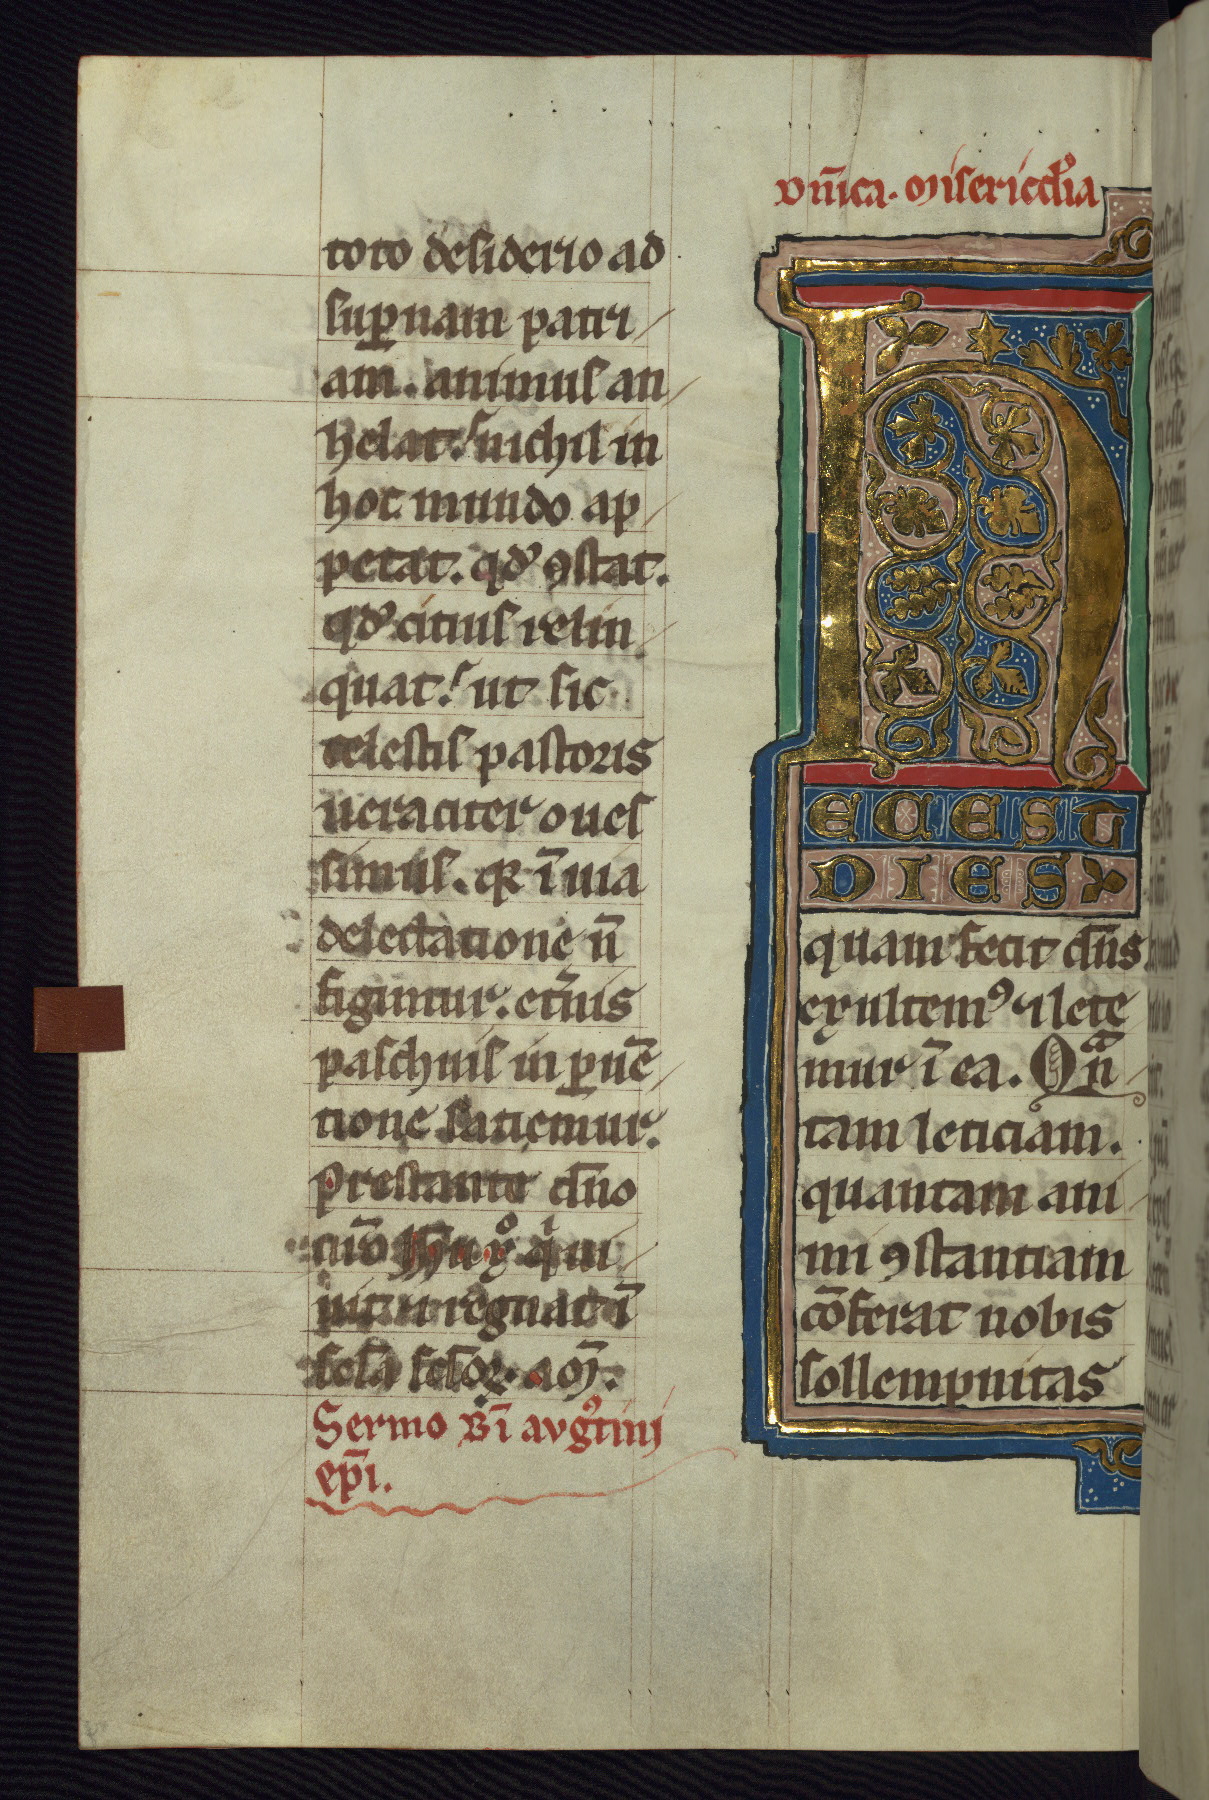 toto desiderio ad
sup̱nam patri
am. animus an
helat. nichil in
hoc mundo ap
petat. qd̓ ꝯstat.
qd̓ citius relin
quat. ut sic
celestis pastoris
ueraciter oues
simus. qꝛ ī uia
delectatione n̄
figimur. et̄nis
paschuis in ꝑuē
tione satiemur.
Prestante dn̄o
regnat ī
sc̄la sc̄loꝝ. am̄.
Sermo Bī avg̓tini
ep̄i.
vn̄ica. Misericord̓ia
H
EC EST
DIES
quam fecit dn̄s
exultemꝰ ⁊ lete
mur ī ea. Qn̄
tam leticiam.
quantam ani
mi ꝯstantiam
cōferat nobis
sollempnitas